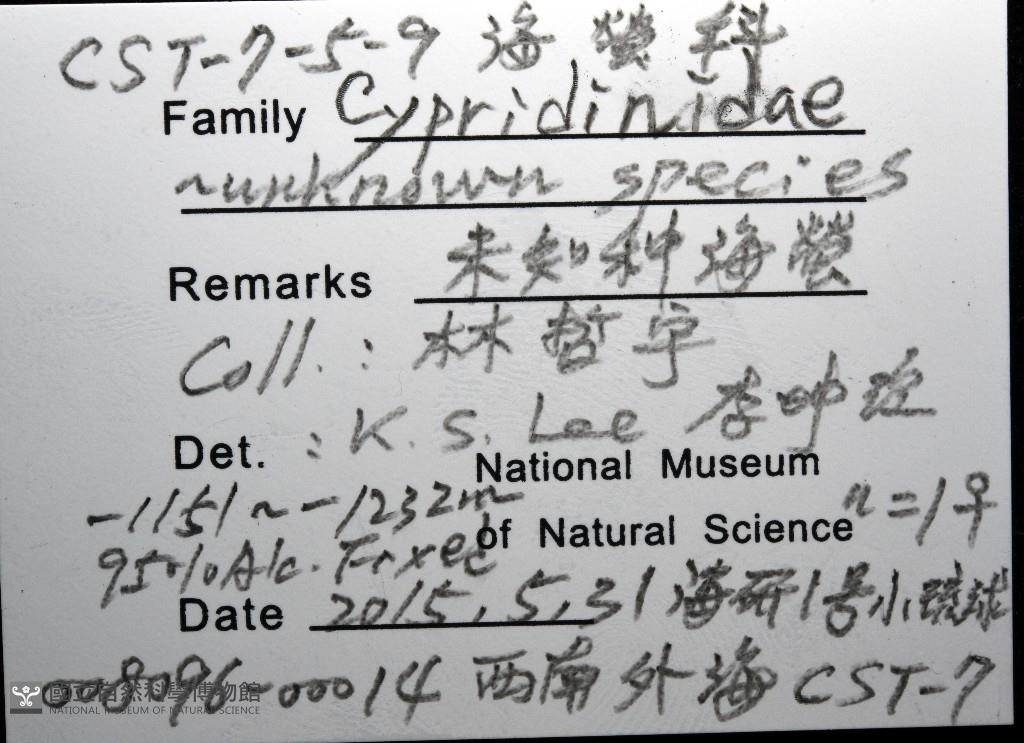 CST-7-5-9 海螢科
Family Cypridinidae
~unknown species
Remarks 未知种海螢
Coll.: 林哲宇
Det. : K. S. Lee 李坤瑄
National Museum
-1151~-1232m
of Natural Science n=1♀
95% Alc. Fixed
Date 2015.5.31 海研1号小琉球
-00014 西南外海 CST-7
國立自然科學博物館
NATIONAL MUSEUM OF NATURAL SCIENCE